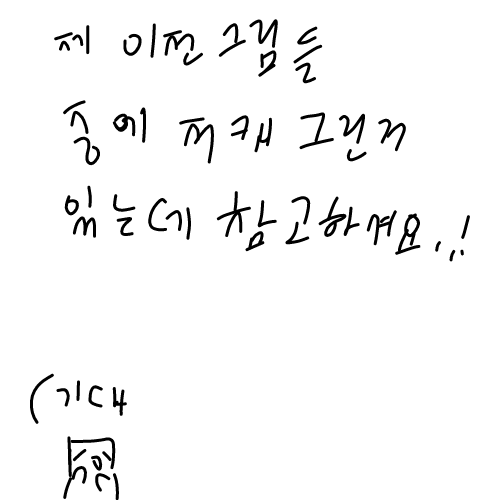 제 이전 그림들
중에 저캐 그린거
있는데 참고하겨요..!
(기대